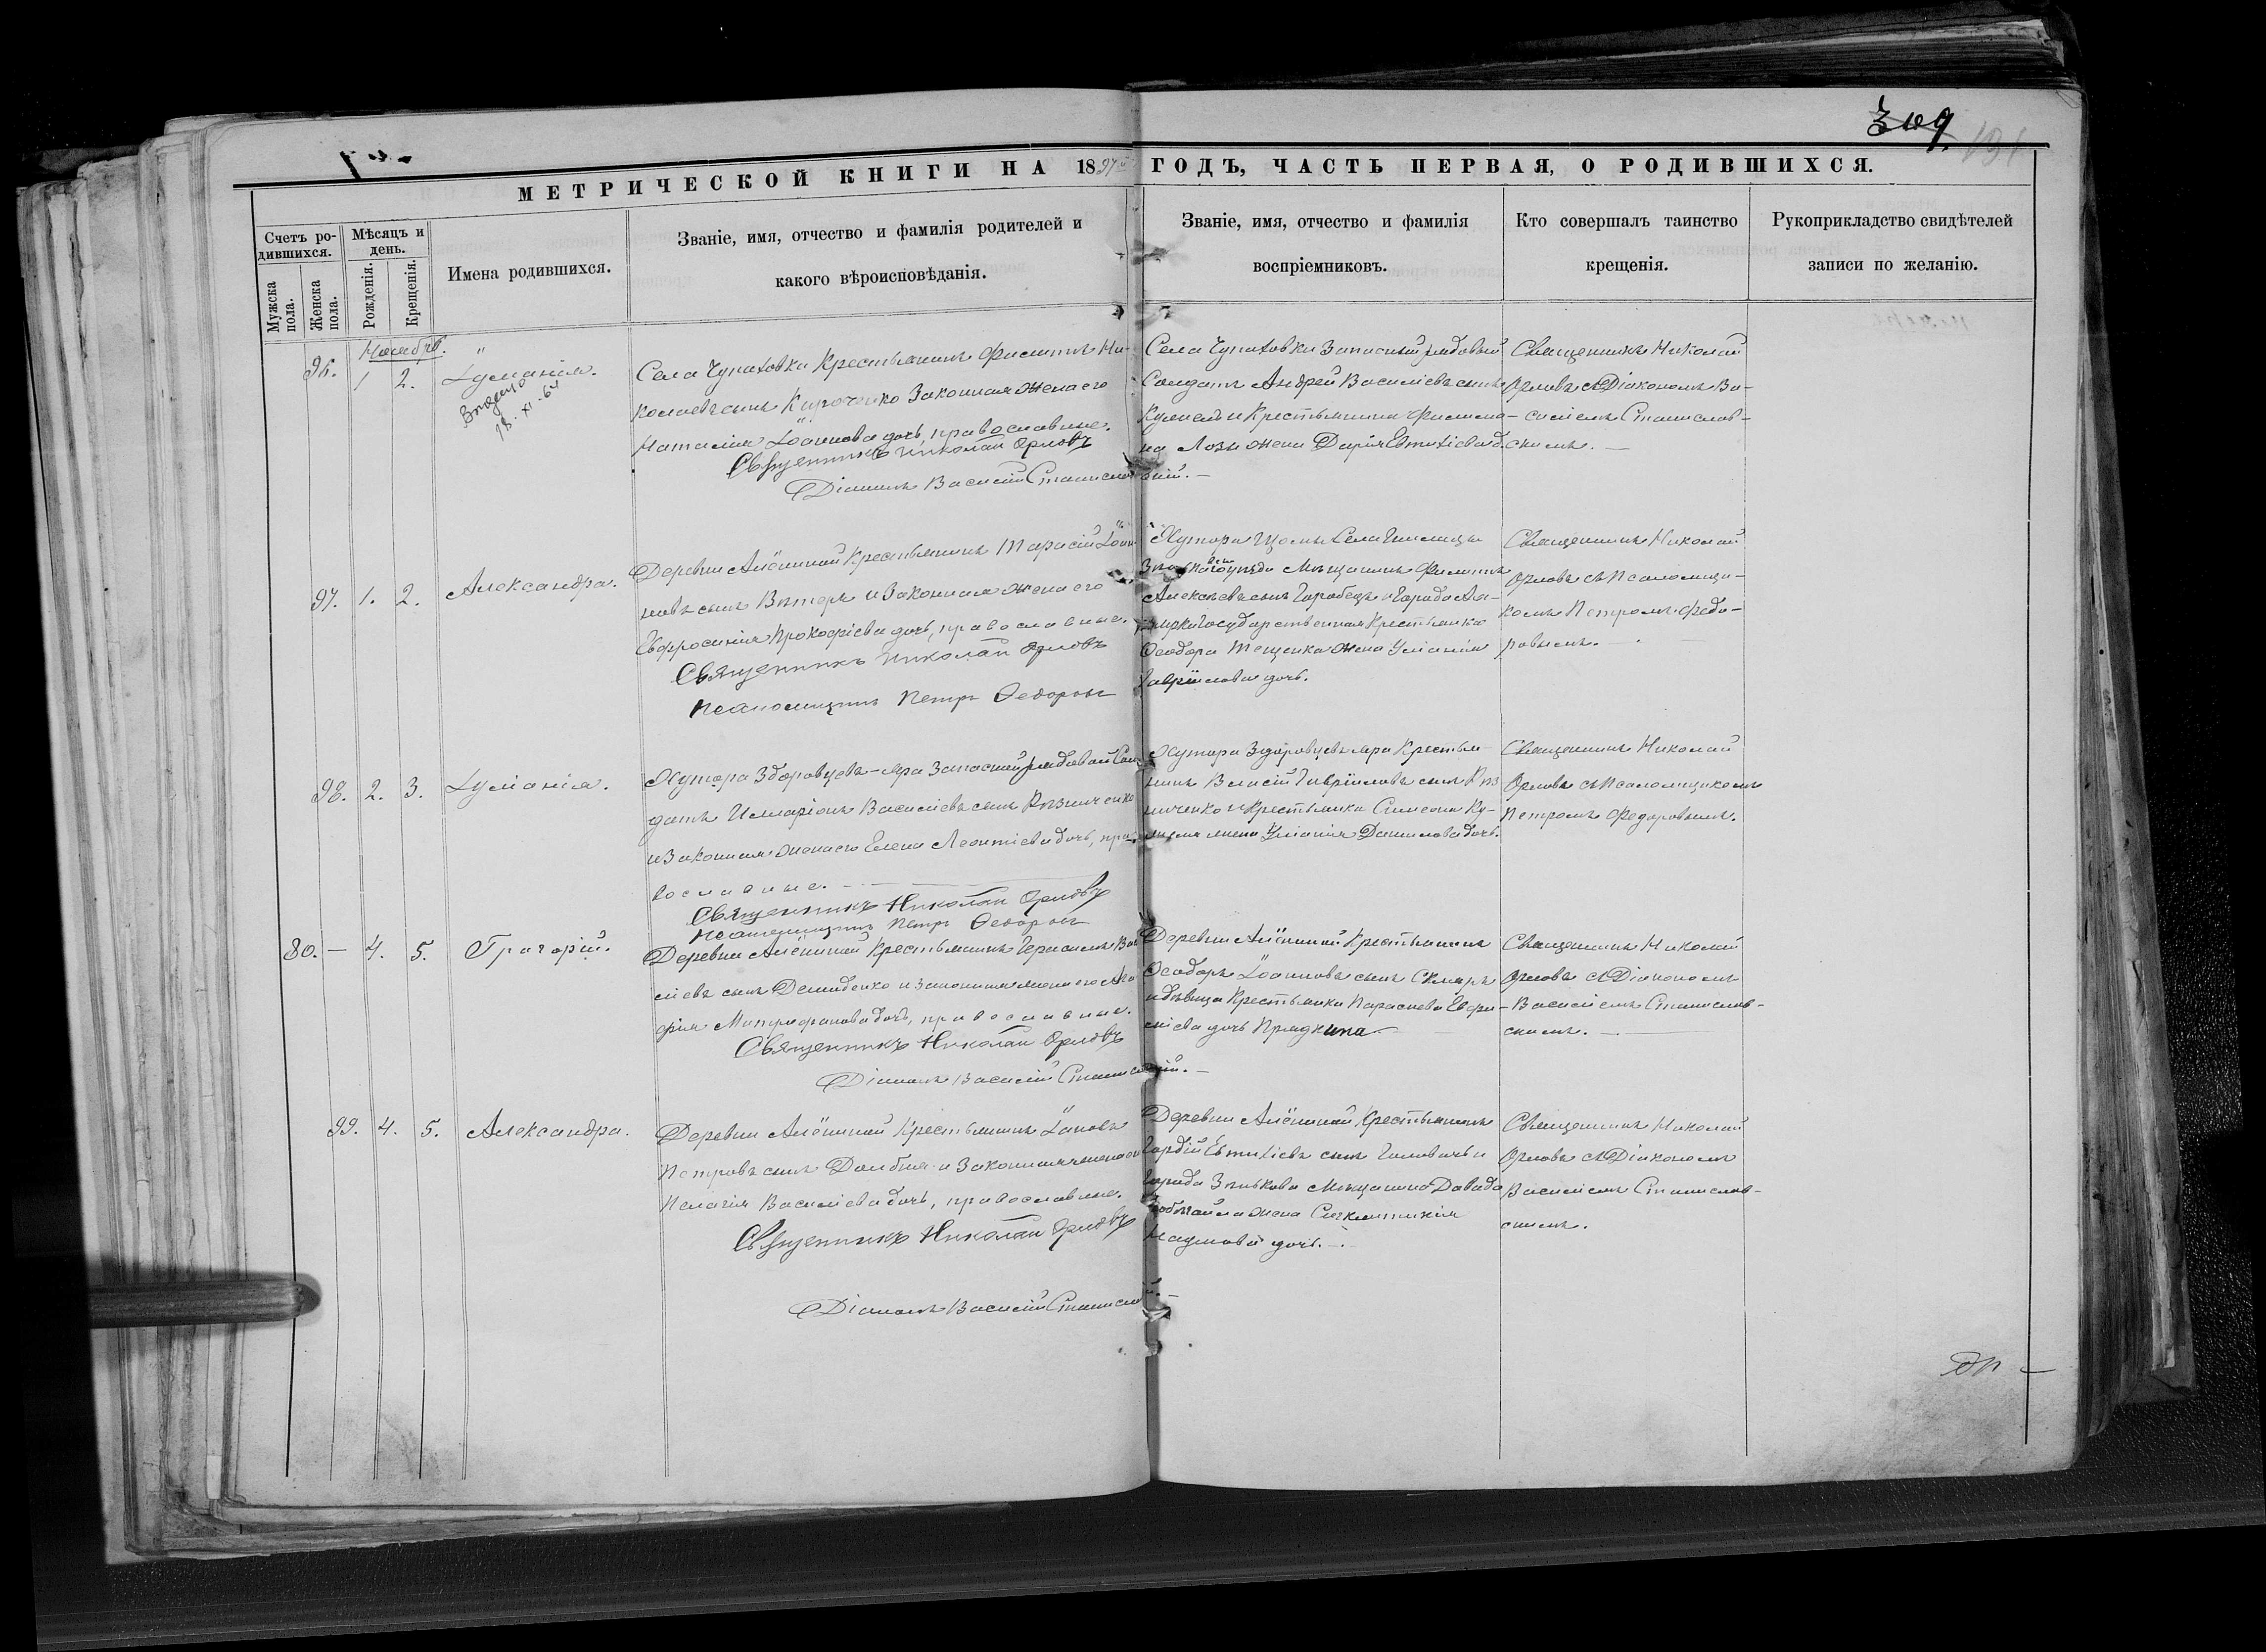 309.
191
МЕТРИЧЕСКОЙ КНИГИ НА 1897й ГОДЪ, ЧАСТЬ ПЕРВАЯ, О РОДИВШИХСЯ.
Счетъ родившихся.
Мужска пола.
Женска пола.
Мѣсяцъ и день.
Рожденія.
Крещенія.
Имена родившихся.
Званіе, имя, отчество и фамилія родителей и
какого вѣроисповѣданія.
Званіе, имя, отчество и фамилія
воспріемниковъ.
Кто совершалъ таинство
крещенія.
Рукоприкладство свидѣтелей
записи по желанію.
Ноябрь.
96. 1 2. Іуліанія.
18.XI.64
Села Чупаховки Крестьянинъ Филиппъ Ни-
колаевъ сынъ Кириченко Законная жена его
Наталія Іоаннова дочь, православные.
Священникъ Николай Орловъ
Діаконъ Василій Станиславскій.
Села Чупаховки Запасный рядовый
Солдатъ Андрей Василіевъ сынъ
и Крестьянина Филиппа
Лозы жена Дарія Евтихіева д.
Священникъ Николай
Орловъ съ Діакономъ Ва-
силіемъ Станислав-
скимъ.
97. 1. 2. Александра.
Деревни Алёшиной Крестьянинъ Тарасій Іоан-
новъ сынъ Вътеръ и Законная жена его
Евфросинія Прокофіева дочь, православные.
Священникъ Николай Орловъ
Псаломщикъ Петръ Федоровъ
Хутора Села
уѣзда Мѣщанинъ Филиппъ
Алексѣевъ сынъ Горобецъ и Города
Государственная Крестьянка
Ѳеодора Тещенка жена Уліанія
Гавріилова дочь.
Священникъ Николай
Орловъ съ Псаломщи-
комъ Петромъ Федо-
ровымъ.
98. 2. 3. Іуліанія.
Хутора Здоровцевъ-яра Запасный рядовой Сол-
датъ Илларіонъ Василіевъ сынъ Рѣзниченко
и Законная жена его Елена Леонтіева дочь, пра-
вославные.
Священникъ Николай Орловъ
Псаломщикъ Петръ Федоровъ
Хутора Здоровцевъ яра Крестья-
нинъ Власій Гавріиловъ сынъ Рѣз-
ниченко и Крестьянина Симеона
жена Уліанія Даниилова дочь.
Священникъ Николай
Орловъ съ Псаломщикомъ
Петромъ Федоровымъ.
80. — 4. 5. Григорій.
Деревни Алёшиной Крестьянинъ Герасимъ Васи-
ліевъ сынъ Демиденко и законная жена его Ага-
фія Митрофанова дочь, православные.
Священникъ Николай Орловъ
Діаконъ Василій Станиславскій.
Деревни Алёшиной Крестьянинъ
Ѳеодоръ Іоанновъ сынъ Скляръ
и дѣвица Крестьянка Параскева
дочь Прядкина
Священникъ Николай
Орловъ съ Діакономъ
Василіемъ Станислав-
скимъ.
99. 4. 5. Александра.
Деревни Алёшиной Крестьянинъ Іаковъ
Петровъ сынъ Домбна и Законная жена его
Пелагія Василіева дочь, православные.
Священникъ Николай Орловъ
Діаконъ Василій Станиславскій.
Деревни Алёшиной Крестьянинъ
Гордій Евтихіевъ сынъ и
Города Зѣнькова Мѣщанина Давида
жена Синклитикія
Наумова дочь.
Священникъ Николай
Орловъ съ Діакономъ
Василіемъ Станислав-
скимъ.